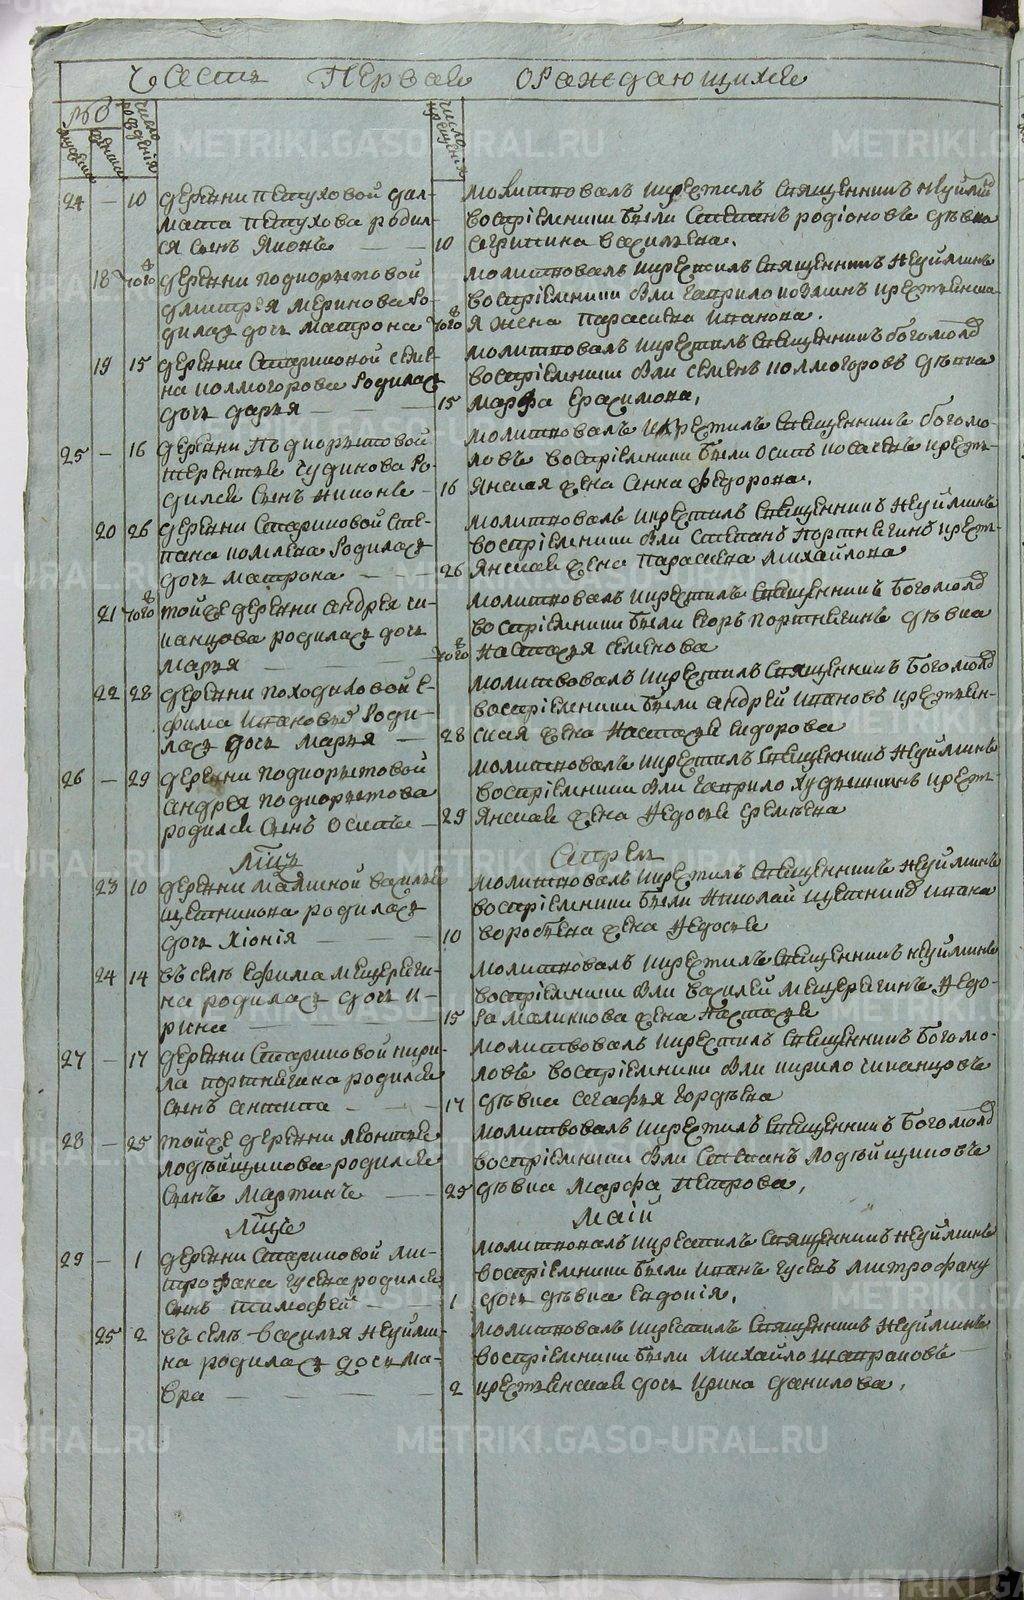 Часть Первая ораждающихся
№
мужеска
женска
число рождения
число крещения
24 — 10 деревни петуховой дал-
мата петухова родил-
ся сынъ Яковъ
молитвовалъ и крестилъ священникъ Неуймин
воспріемники были Степанъ родіоновъ девка
10
18 того деревни подкорытовой
дмитрея меринова ро-
дилась дочь матрона
молитвовалъ и крестилъ священникъ Неуйминъ
воспріемники были гаврило
того я жена парасковья иванова.
19 15 деревни Стариковой семе-
на колмогорова родилась
дочь дарья
молитвовалъ и крестилъ священникъ богомоло
воспріемники были семенъ колмогоровъ девка
15 марфа
25 — 16 деревни подкорытовой
терентья чудинова ро-
дился сынъ никонъ
молитвовалъ и крестилъ священникъ богомо-
ловъ воспріемники были осипъ кресть-
16 янская жена анна федорова.
20 26 деревни Стариковой сте-
пана родилась
дочь матрона
молитвовалъ и крестилъ священникъ Неуйминъ
воспріемники были степанъ портнягинъ кресть-
26 янская жена парасковья михайлова
21 того тойже деревни андрея чи-
канцова родилась дочь
марья
молитвовалъ и крестилъ священникъ богомоло
воспріемники были егоръ портнягинъ девка
того настасья семенова
22 28 деревни походиловой е-
фима иванова роди-
лась дочь марья
молитвовалъ и крестилъ священникъ богомоло
воспріемники были андрей ивановъ крестьян-
28 ская жена настасья сидорова
26 — 29 деревни подкорытовой
андрея подкорытова
родился сынъ осипъ
молитвовалъ и крестилъ священникъ Неуйминъ
воспріемники были гаврило кресть-
29 янская жена федосья еремеева
мцъ Апрель
23 10 деревни василья
щетникова родилась
дочь хіонія
молитвовалъ и крестилъ священникъ Неуйминъ
воспріемники были николай ивана
10 жена федосья
24 14 въ селе ефима мещеряги-
на родилась дочь и-
рина
молитвовалъ и крестилъ священникъ неуйминъ
воспріемники были василей мещерягинъ федо-
15 ра маликова жена настасья
27 — 17 деревни Стариковой кири-
ла портнягина родился
сынъ антипа
молитвовалъ и крестилъ священникъ богомо-
ловъ воспріемники были кирило чиканцовъ
17 девка агафья гордеева
28 — 25 тойже деревни леонтья
лодейщикова родился
сынъ мартинъ
молитвовалъ и крестилъ священникъ богомоло
воспріемники были степанъ лодейщиковъ
25 девка марфа петрова,
мцъ маій
29 — 1 деревни Стариковой ми-
трофана гусева родился
сынъ тимофей
молитвовалъ и крестилъ священникъ неуйминъ
воспріемники были иванъ гусевъ митрофану
1 дочь девка евдокія.
25 2 въ селе василья неуйми-
на родилась дочь ма-
вра
молитвовалъ и крестилъ священникъ неуйминъ
воспріемники были михайло
2 крестьянская дочь ирина данилова.
METRIKI.GASO-URAL.RU